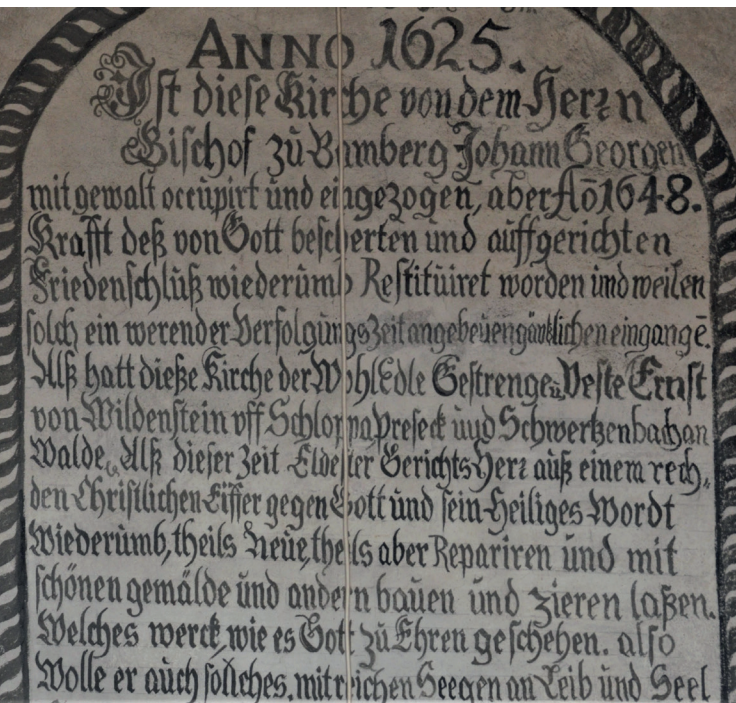 ANNO 1625.
Ist dieße Kirche von dem Herrn
Bischof zu Bamberg Johann Georgen
mit gewalt occupirt und eingezogen, aber Aō 1648.
Krafft deß von Gott bescherten und auffgerichten
Friedenschluß wiederumb Restituiret worden und weilen
solch ein werender Verfolgungs Zeit an gebeuen gäntzlichen eingangē.
Alß hatt dieße Kirche der Wohl Edle Gestrenge u. Veste Ernst
von Wildenstein vff Schloppa, Preseck und Schwertzenbach an
Walde, Alß dießer Zeit Eldester Gerichts Herr auß einem rech,
den Christlichen Eiffer gegen Gott und sein Heiliges Wordt
Wiederumb, theils Neue, theils aber Repariren und mit
schönen gemälde und andern bauen und zieren laßen.
Welches werck, wie es Gott zu Ehren geschehen. also
Wolle er auch solches, mit reichen Seegen an Leib und Seel